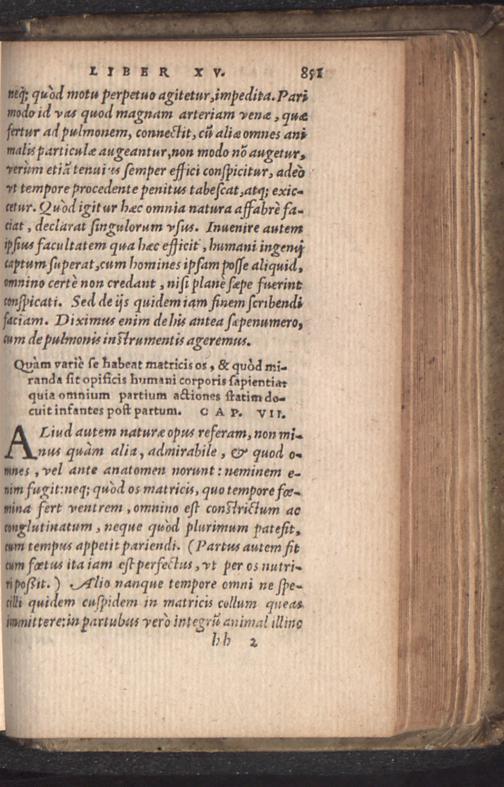 LIBER XV. 851
neq; quòd motu perpetuo agitetur, impedita. Pari
modo id vas quod magnam arteriam venæ, quæ
fertur ad pulmonem, connectit, cũ aliæ omnes ani
malis particulæ augeantur, non modo nō augetur,
verùm etiã tenuius semper effici conspicitur, adeò
vt tempore procedente penitus tabescat, atq; exic-
cetur. Quòd igitur hæc omnia natura affabrè fa-
ciat, declarat singulorum vsus. Inuenire autem
ipsius facultatem qua hæc efficit, humani ingenij
captum superat, cum homines ipsam posse aliquid,
omnino certè non credant, nisi planè sæpe fuerint
conspicati. Sed de ijs quidem iam finem scribendi
faciam. Diximus enim de his antea sæpenumero,
cum de pulmonis instrumentis ageremus.
Quàm variè se habeat matricis os, & quòd mi-
randa sit opificis humani corporis sapientia:
quia omnium partium actiones statim do-
cuit infantes post partum. CAP. VII.
ALiud autem naturæ opus referam, non mi-
nus quàm alia, admirabile, & quod o-
mnes, vel ante anatomen norunt: neminem e-
nim fugit: neq; quòd os matricis, quo tempore fœ-
mina fert ventrem, omnino est constrictum ac
conglutinatum, neque quòd plurimum patefit,
cum tempus appetit pariendi. (Partus autem fit
cum fœtus ita iam est perfectus, vt per os nutri-
ri possit.) Alio nanque tempore omni ne spe-
cilli quidem cuspidem in matricis collum queas
immittere: in partubus verò integrũ animal illinc
hh 2